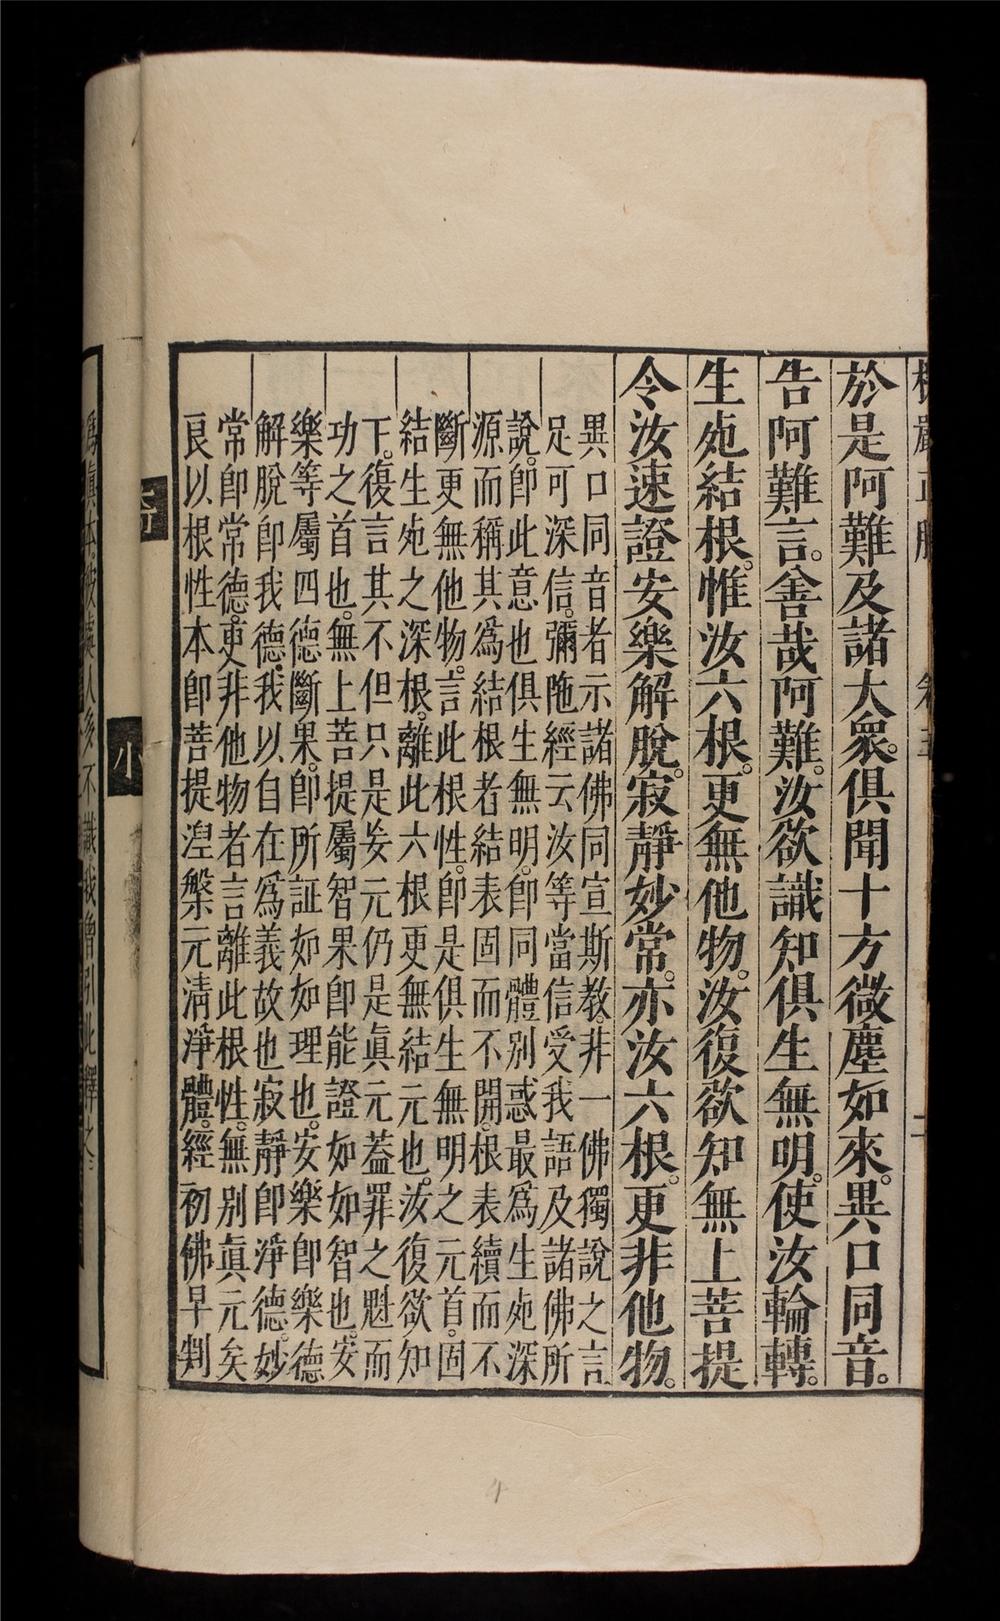 於是阿難及諸大衆。俱聞十方微塵如來。異口同音。
告阿難言。善哉阿難。汝欲識知俱生無明。使汝輪轉。
生死結根。惟汝六根。更無他物。汝復欲知無上菩提
令汝速證安樂解脫。寂靜妙常。亦汝六根。更非他物。
異口同音者示諸佛同宣斯教。非一佛獨說之言
足可深信。彌陀經云汝等當信受我語及諸佛所
說。卽此意也俱生無明。卽同體別惑最爲生死深
源而稱其爲結根者結表固而不開。根表續而不
斷更無他物。言此根性。卽是俱生無明之元首。固
結生死之深根。離此六根更無結元也。汝復欲知
下。復言其不但只是妄元仍是眞元蓋罪之魁而
功之首也。無上菩提屬智果卽能證如如智也。安
樂等屬四德斷果。卽所証如如理也。安樂卽樂德
解脫卽我德。我以自在爲義故也寂靜卽淨德。妙
常卽常德。更非他物者言離此根性。無別眞元矣
良以根性本卽菩提湼槃元清淨體。經初佛早判
小